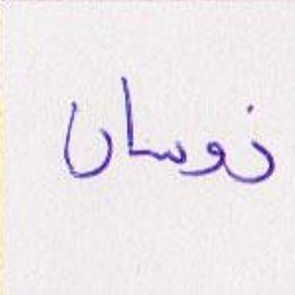 نوسان